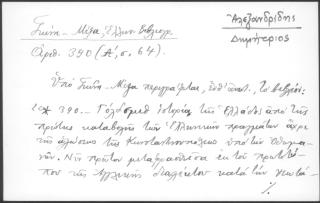 Γκίνη - Μέξα, Ἑλλην. Βιβλιογρ.
Ἀριθ. 390 (Α', σ. 64).
Ἀλεξανδρίδης
Δημήτριος
Ὑπὸ Γκίνη - Μέξα περιγράφεται, ἔνθ' ἀνωτ., τὸ βιβλίον:
"* 390. - Γόλδσμιθ ἱστορία τῆς Ἑλλάδος ἀπὸ τῆς
πρώτης καταβολῆς τῶν Ἑλληνικῶν πραγμάτων ἄχρι
τῆς ἁλώσεως τῆς Κωνσταντινουπόλεως ὑπὸ τῶν Ὀθωμα-
νῶν. Νῦν πρῶτον μεταφρασθεῖσα ἐκ τοῦ πρωτοτύ-
που τῆς Ἀγγλικῆς διαλέκτου κατὰ τὴν
./.